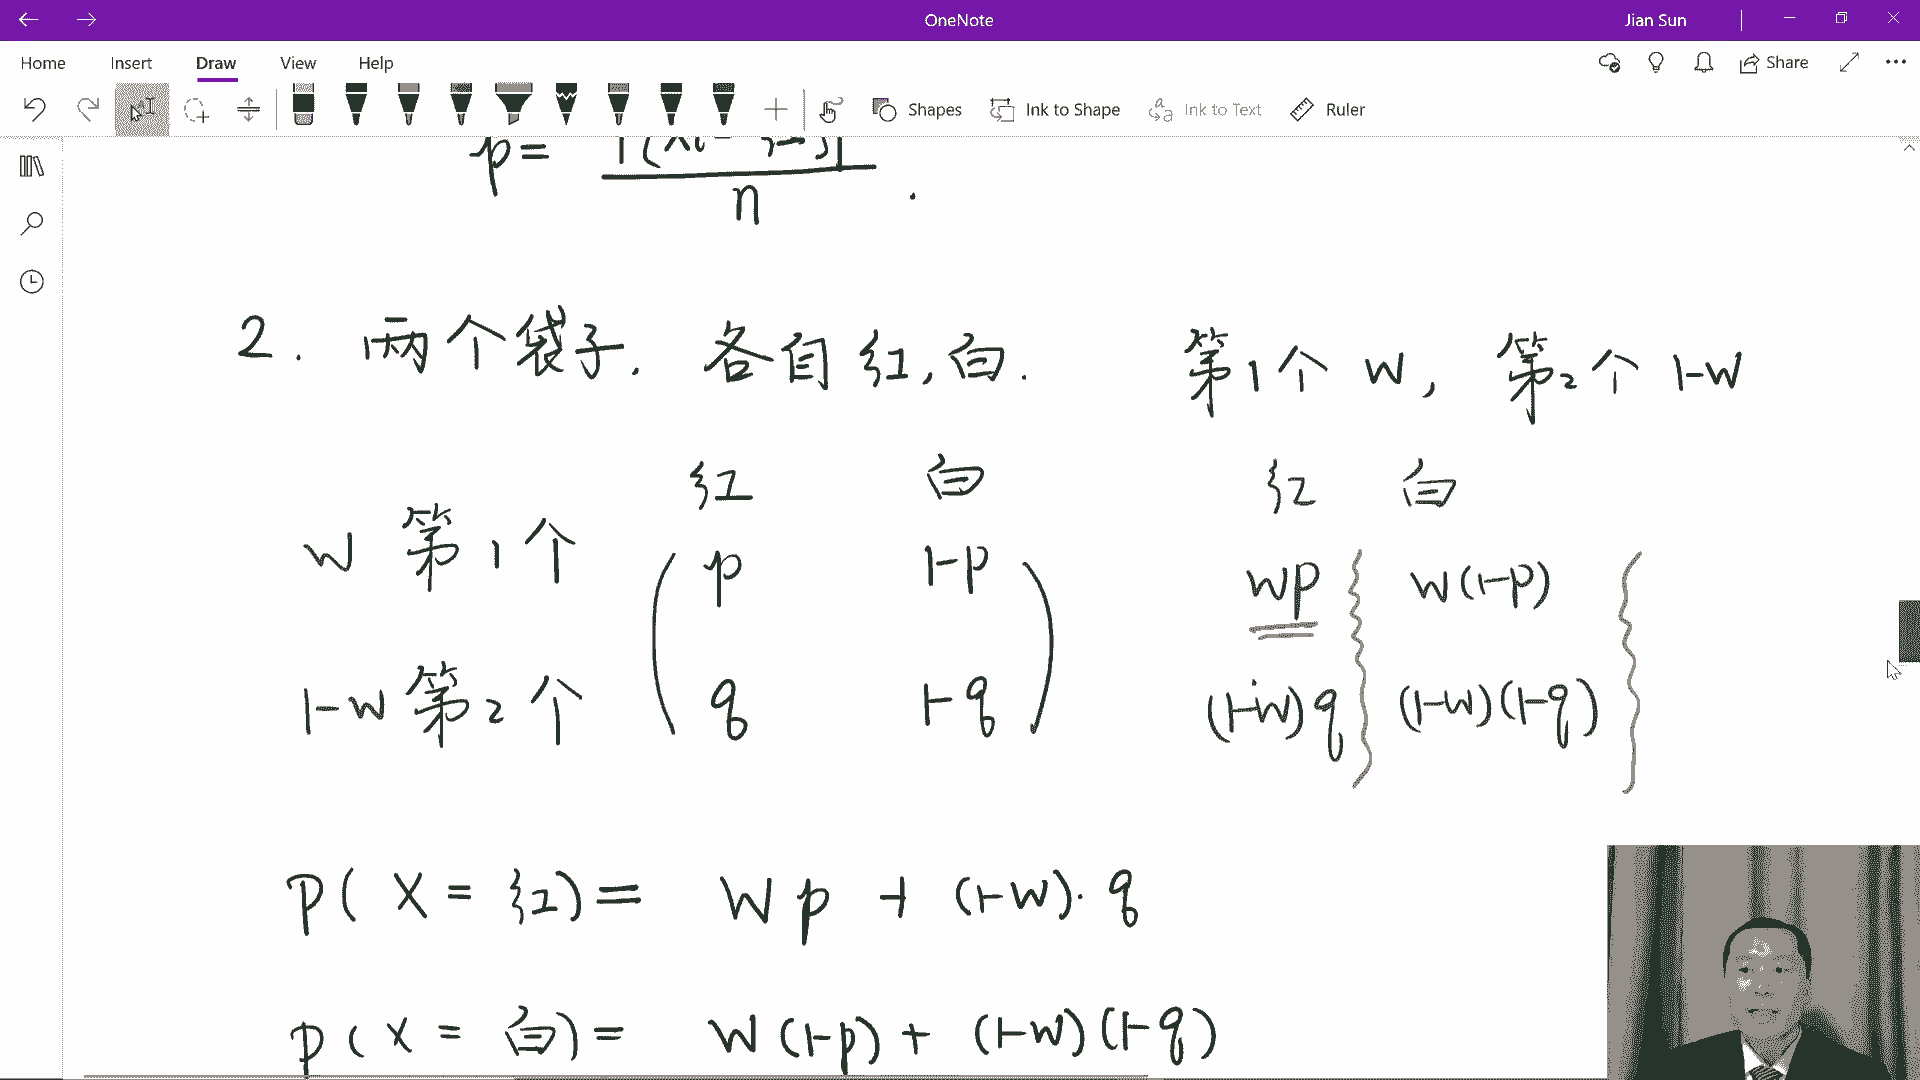 OneNote Jian Sun
Home Insert Draw View Help Share
Shapes Ink to Shape Ink to Text Ruler
p =
n .
2. 两个袋子. 各自红,白. 第1个 w, 第2个 1-w
红 白 红 白
w 第1个 p 1-p wp w(1-p)
1-w 第2个 q 1-q (1-w)q (1-w)(1-q)
P( X = 红) = w p + (1-w)· q
P( X = 白) = w (1-p) + (1-w)(1-q)